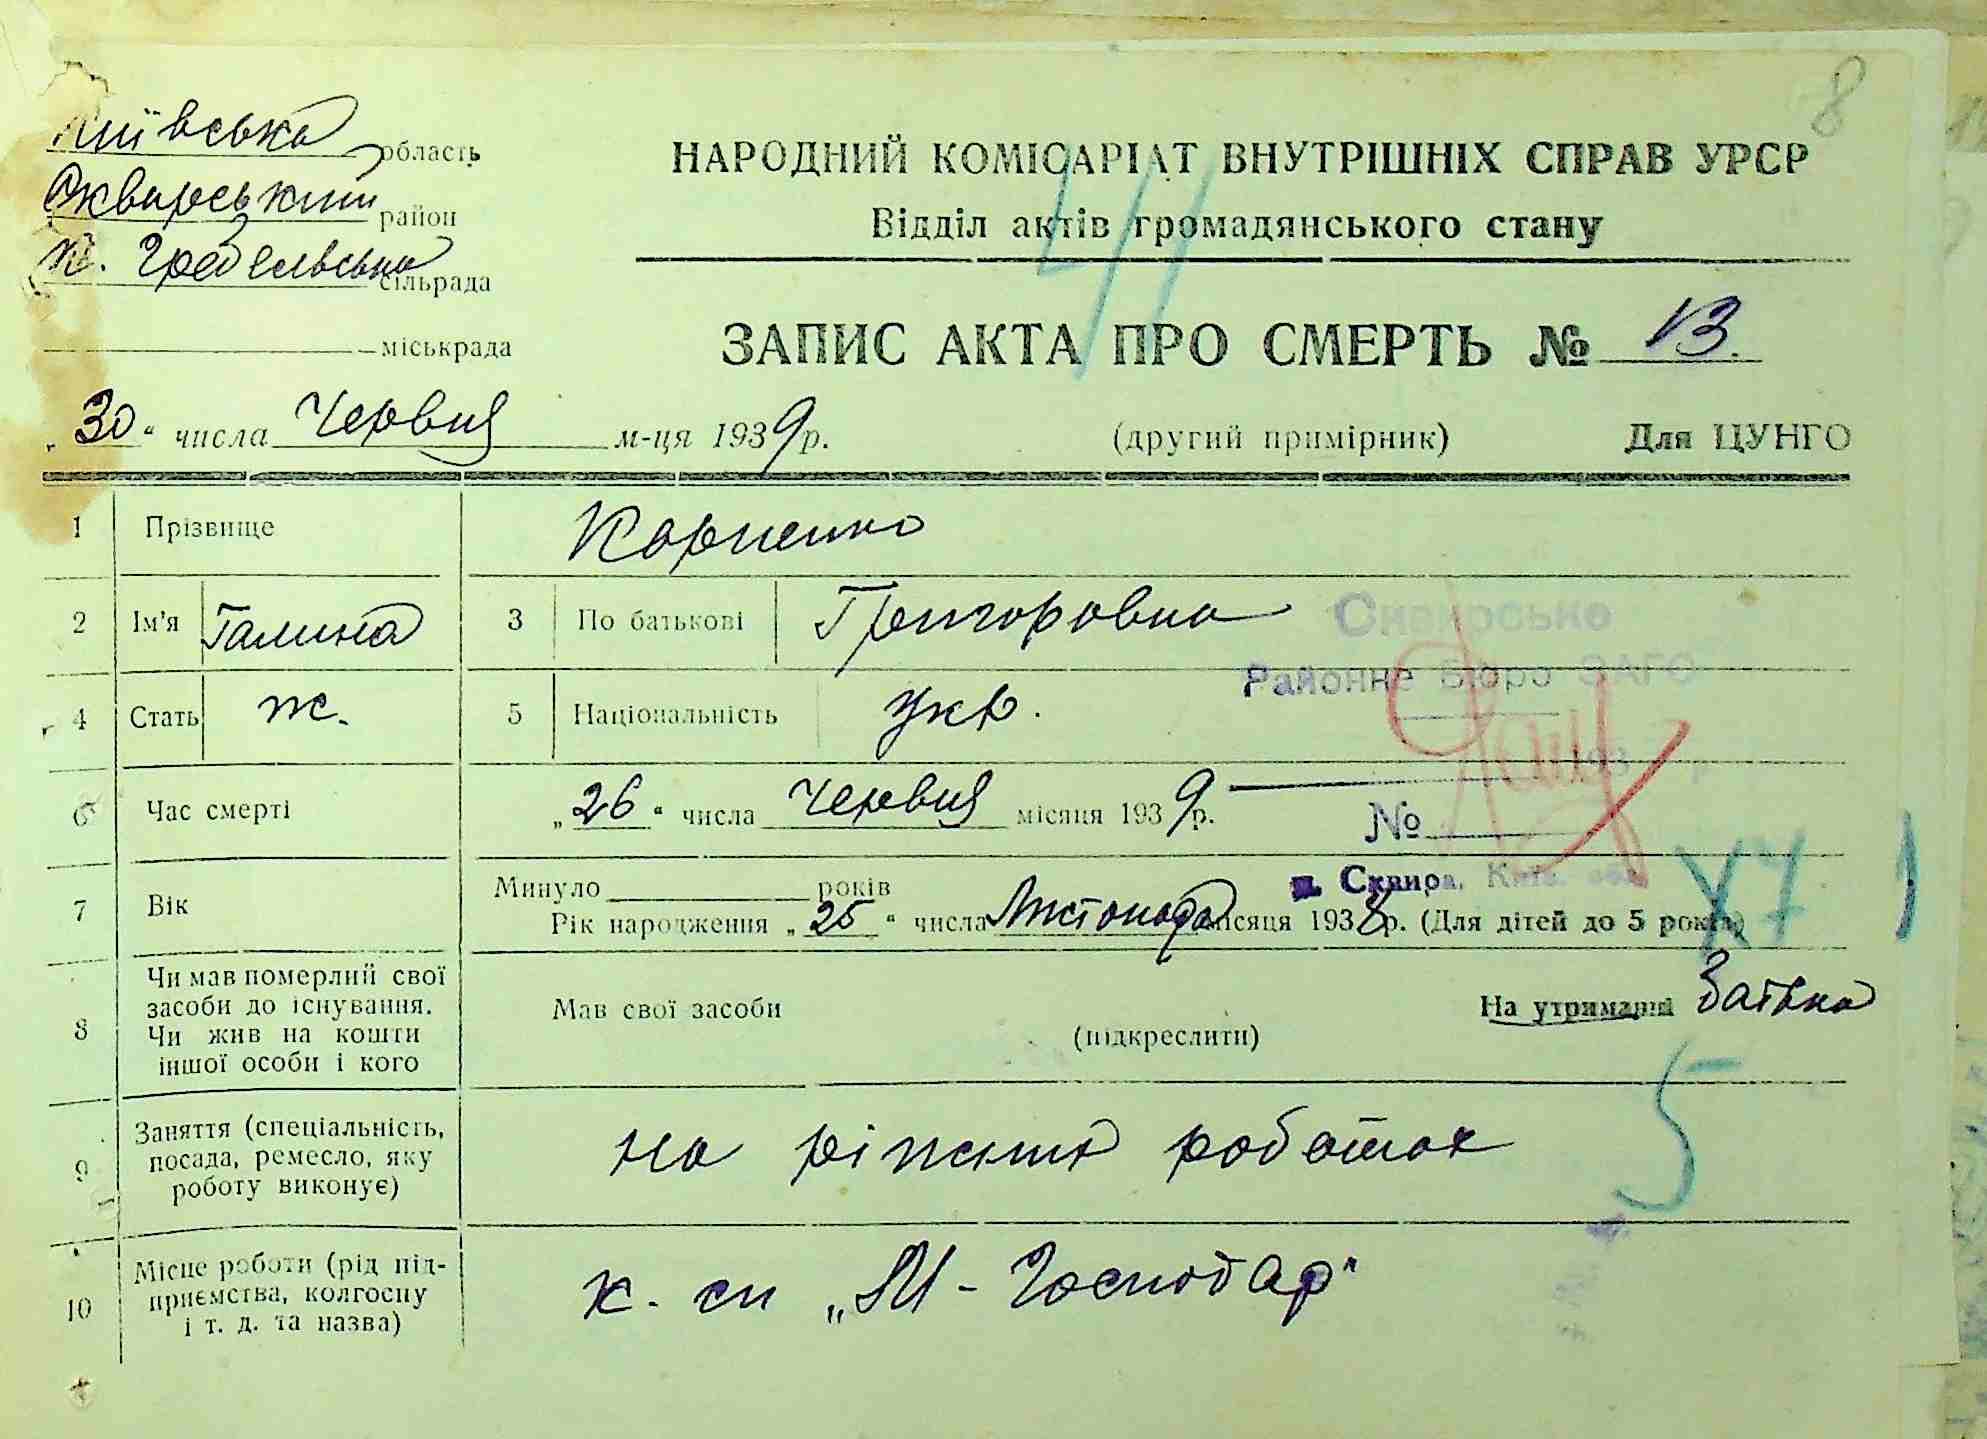 8
Київська область
Сквирський район
К. Гребельська сільрада
міськрада
НАРОДНИЙ КОМІСАРІАТ ВНУТРІШНІХ СПРАВ УРСР
Відділ актів громадянського стану
41
ЗАПИС АКТА ПРО СМЕРТЬ № 13.
„30“ числа Червня м-ця 1939р.
(другий примірник) Для ЦУНГО
1 Прізвище Корненко
2 Ім'я Галина 3 По батькові Григоровна
Сквирське
Районне Бюро ЗАГС
4 Стать ж. 5 Національність укр.
193 р.
6 Час смерті „26“ числа Червня місяця 1939р.
№
м. Сквира, Київ. обл.
7 Вік Минуло років
Рік народження „25“ числа Листопада місяця 1938р. (Для дітей до 5 років)
X7 1
8 Чи мав померлий свої
засоби до існування.
Чи жив на кошти
іншої особи і кого
Мав свої засоби
(підкреслити)
На утриманні Батька
5
9 Заняття (спеціальність,
посада, ремесло, яку
роботу виконує)
на ріжних роботах
10 Місце роботи (рід під-
приємства, колгоспу
і т. д. та назва)
к. сп „М-Господар“